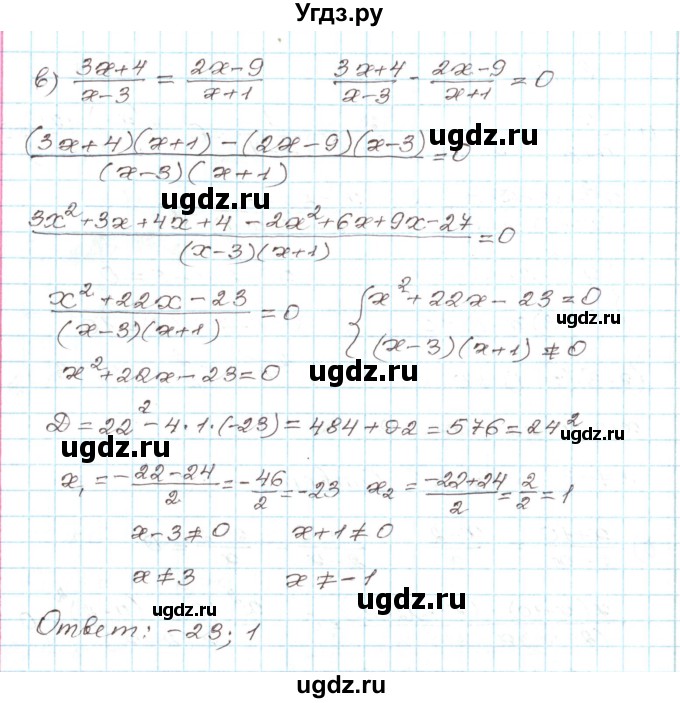 Угдз.ру
в) (3x+4)/(x-3) = (2x-9)/(x+1)   (3x+4)/(x-3) - (2x-9)/(x+1) = 0
ugdz.ru
((3x+4)(x+1) - (2x-9)(x-3))/((x-3)(x+1)) = 0
ugdz.ru
(3x²+3x+4x+4-2x²+6x+9x-27)/((x-3)(x+1)) = 0
(x²+22x-23)/((x-3)(x+1)) = 0   { x²+22x-23=0
ugdz.ru
(x-3)(x+1) ≠ 0
x²+22x-23=0
ugdz.ru
D = 22²-4·1·(-23) = 484+92 = 576 = 24²
ugdz.ru
ugdz.ru
x₁ = (-22-24)/2 = -46/2 = -23   x₂ = (-22+24)/2 = 2/2 = 1
ugdz.ru
x-3≠0   x+1≠0
x≠3   x≠-1
ugdz.ru
ugdz.ru
Ответ: -23; 1
ugdz.ru
ugdz.ru